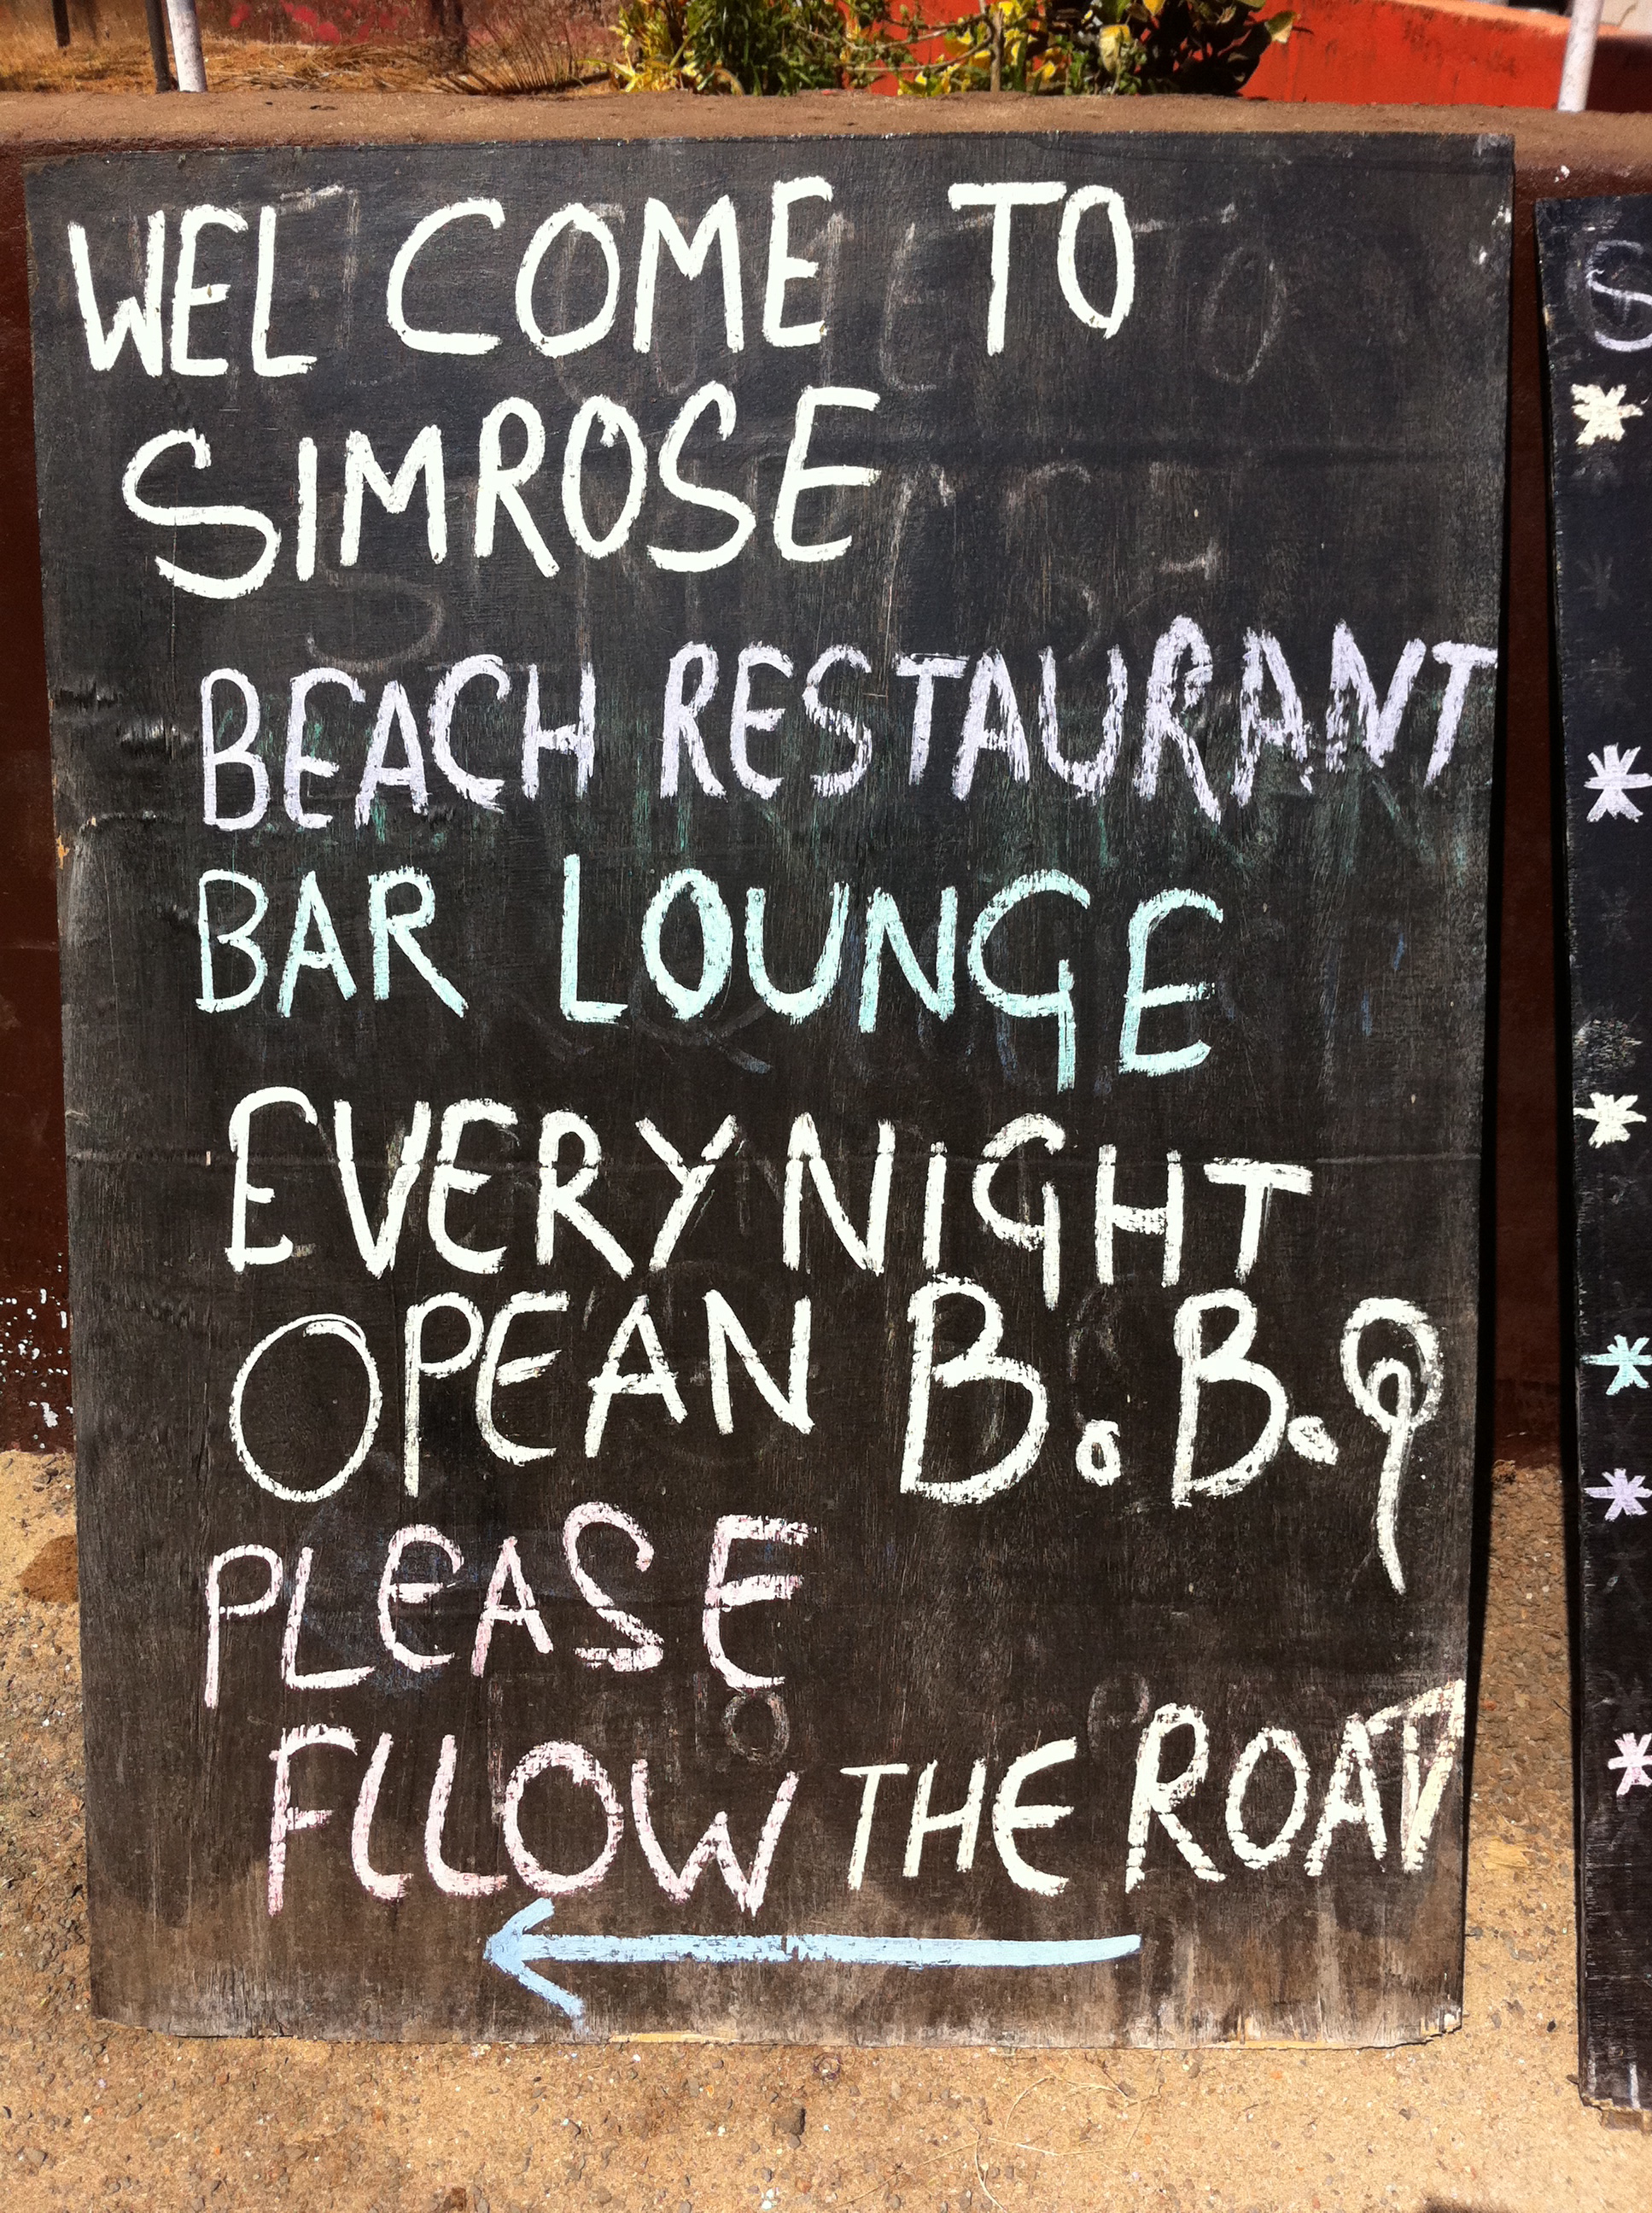 WEL COME TO
SIMROSE
BEACH RESTAURANT
BAR LOUNGE
EVERY NIGHT
OPEAN B.B.Q
PLEASE
FLLOW THE ROAD
S